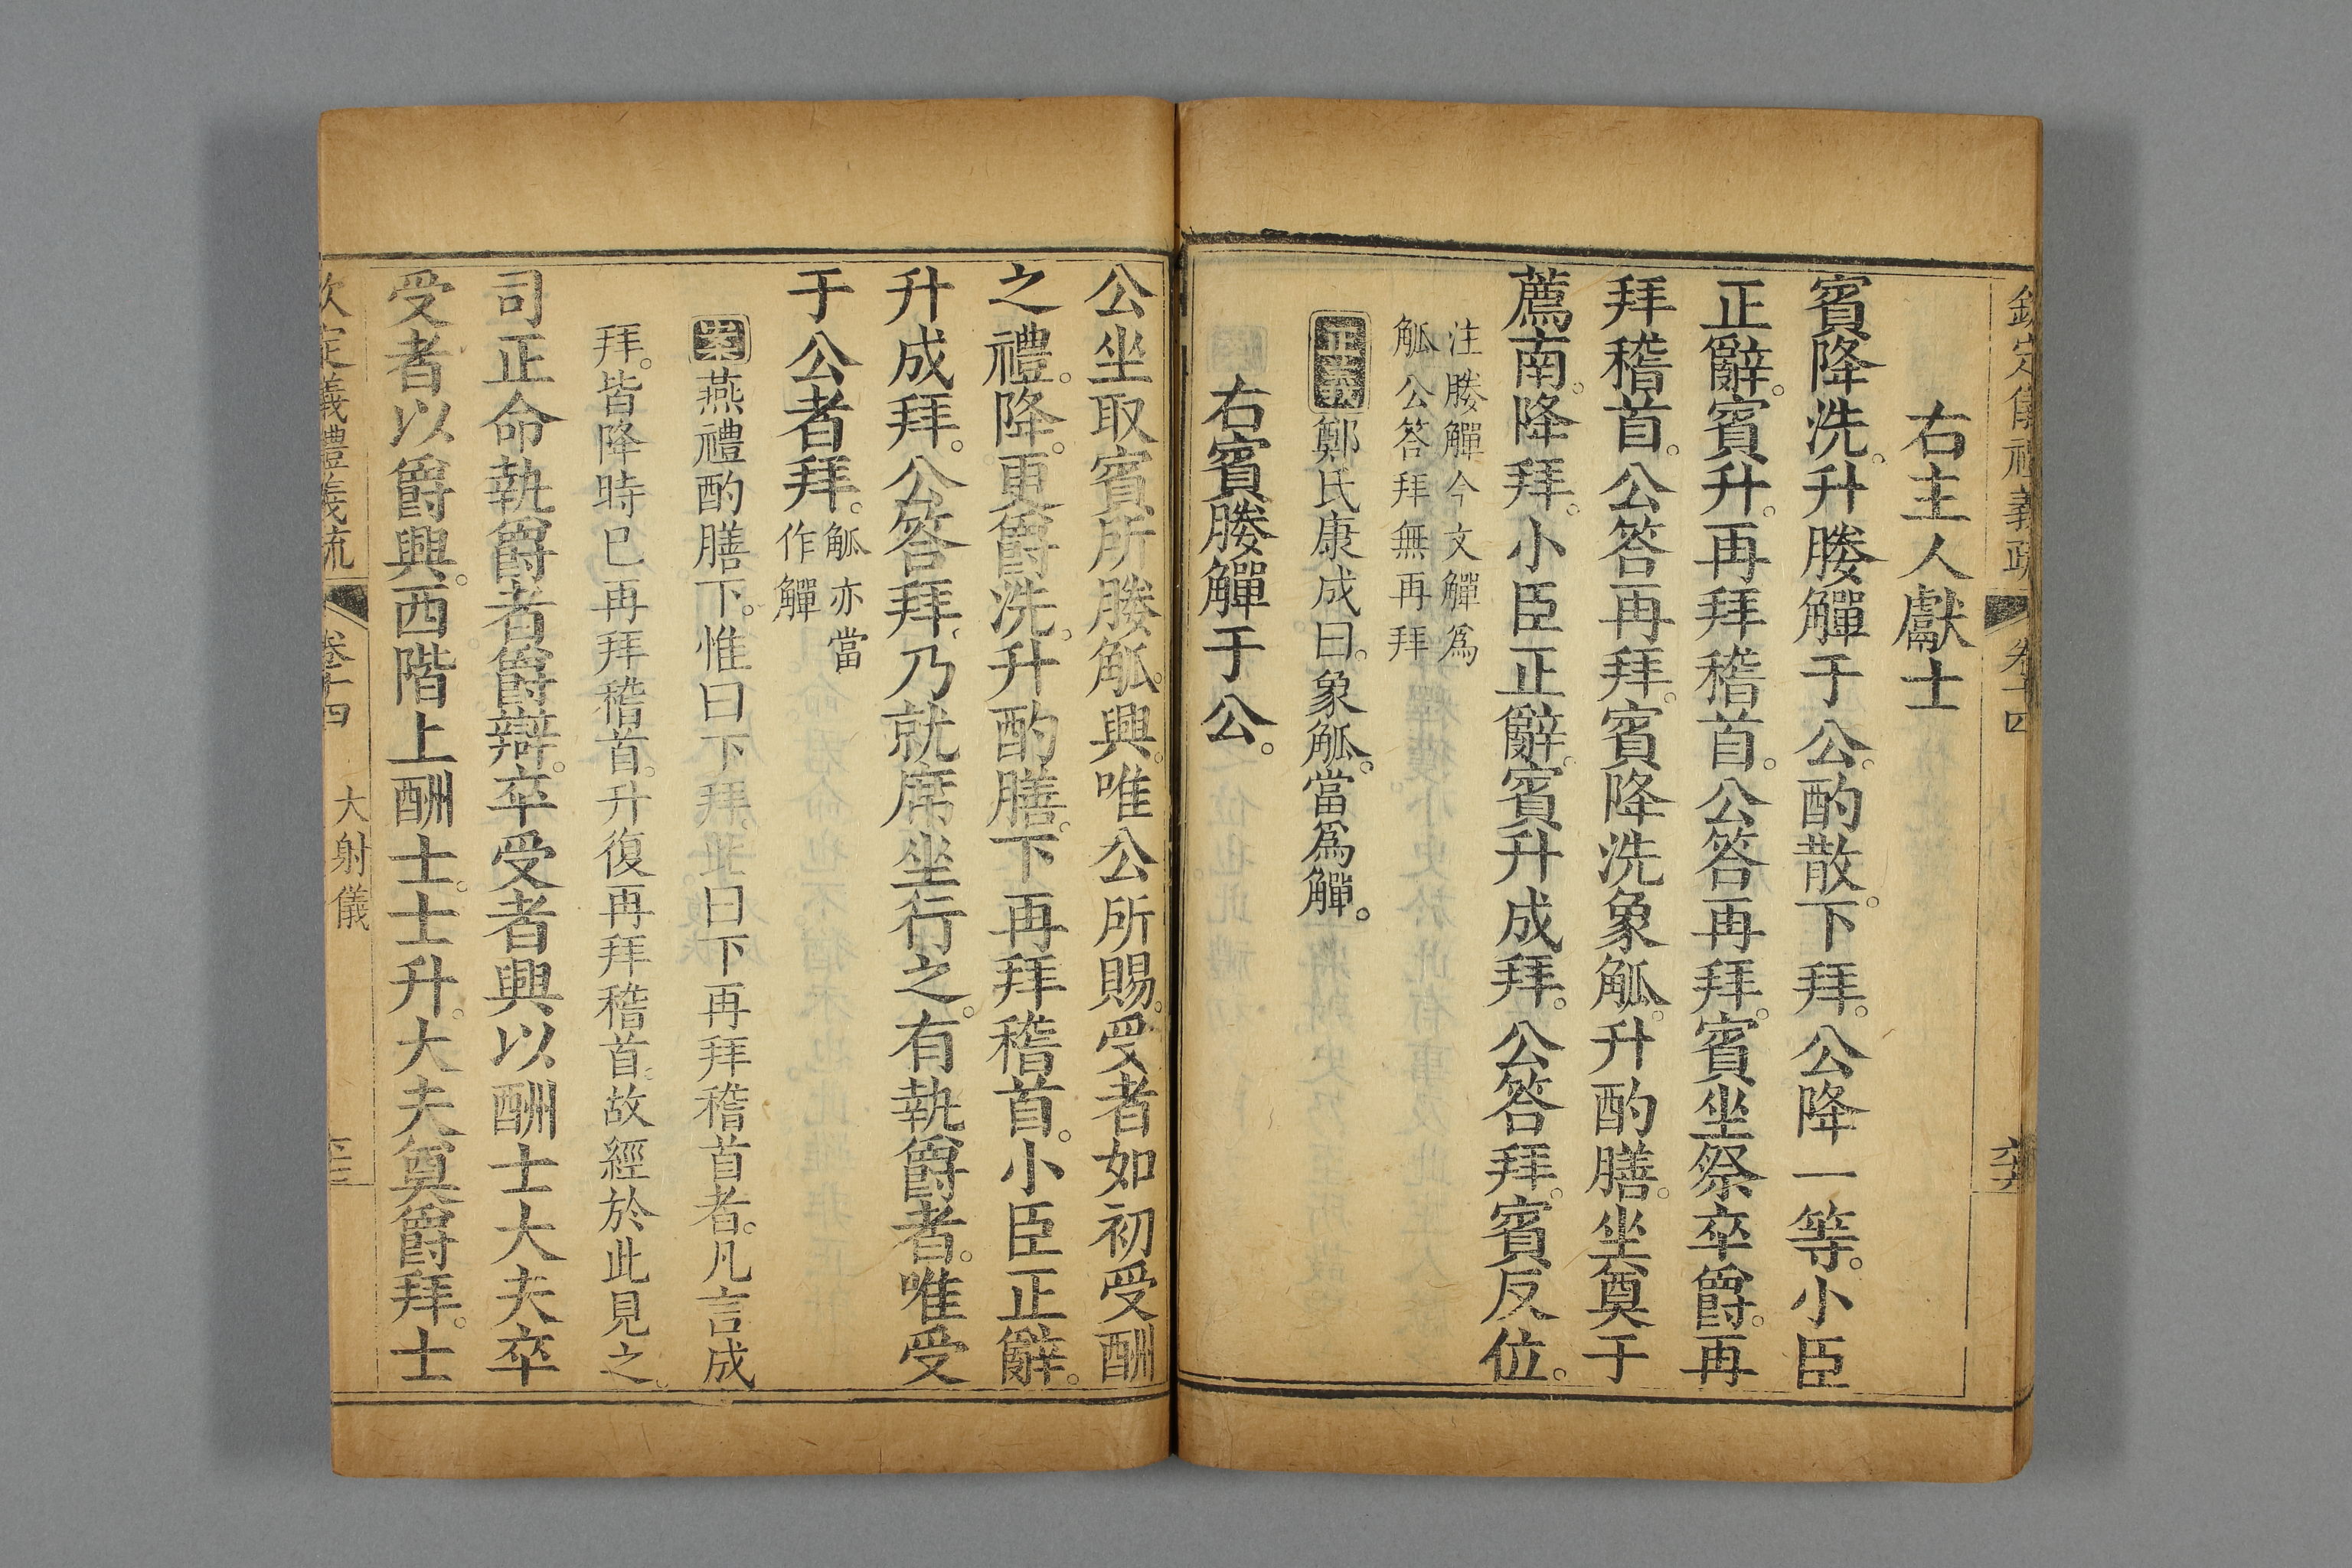 欽定儀禮義疏 卷十四
右主人獻士
賓降洗。升媵觶于公。酌散。下拜。公降一等。小臣
正辭。賓升。再拜稽首。公答再拜。賓坐祭卒爵。再
拜稽首。公答再拜。賓降洗象觚。升酌膳。坐奠于
薦南。降拜。小臣正辭。賓升成拜。公答拜。賓反位。
注媵觶今文觶爲
觚公答拜無再拜
正義鄭氏康成曰。象觚。當爲觶。
右賓媵觶于公。
公坐取賓所媵觚。興。唯公所賜。受者如初受酬
之禮。降。更爵洗。升酌膳。下再拜稽首。小臣正辭。
升成拜。公答拜。乃就席。坐行之。有執爵者。唯受
于公者拜。觚亦當
作觶
案燕禮酌膳下。惟曰下拜。此曰下再拜稽首者。凡言成
拜。皆降時已再拜稽首。升復再拜稽首。故經於此見之。
司正命執爵者爵辯。卒受者興以酬士大夫卒
受者以爵興。西階上酬士。士升。大夫奠爵拜。士
欽定義禮義疏 卷十四 大射儀